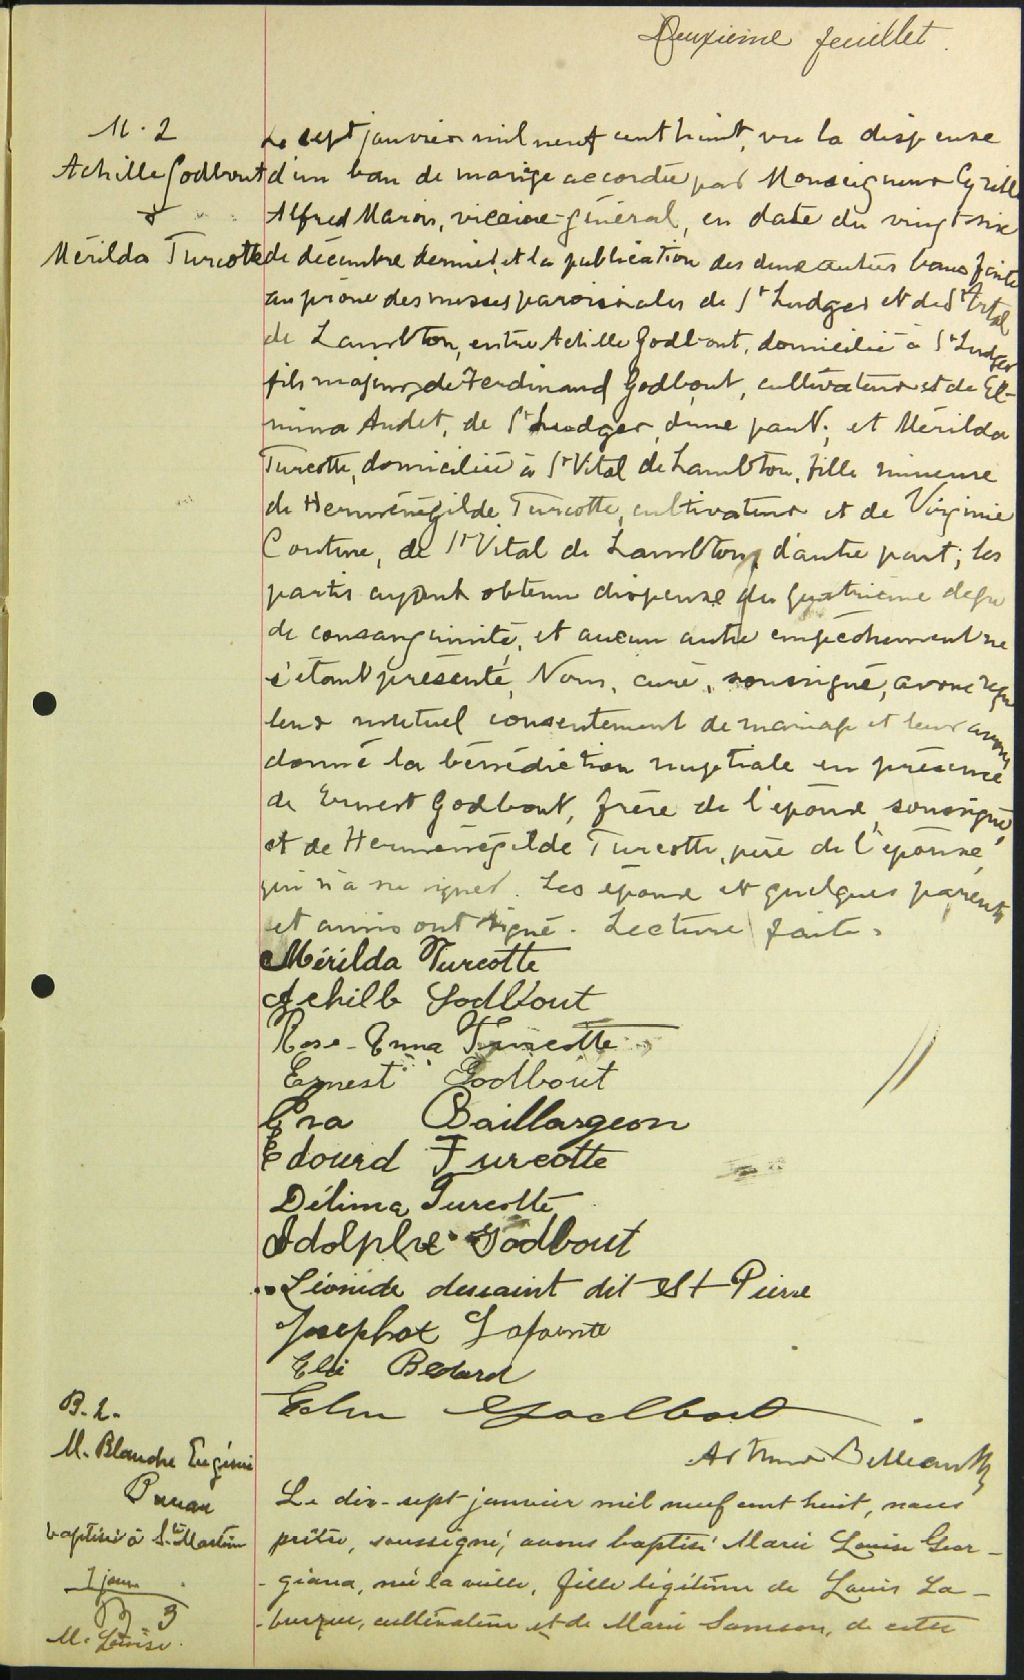 Deuxième feuillet.
M. 2
Achille Godbout
&
Mérilda Turcotte
Le sept janvier mil neuf cent huit, vu la dispense
d'un ban de mariage accordée par Monseigneur Cyrille
Alfred Marois, vicaire-général, en date du vingt-six
de décembre dernier, et la publication des deux autres bans faite
au prône des messes paroissiales de St Ludger et de St Vital
de Lambton, entre Achille Godbout, domicilié à St Ludger
fils majeur de Ferdinand Godbout, cultivateur et de El-
mina Audet, de St Ludger, d'une part; et Mérilda
Turcotte, domiciliée à St Vital de Lambton, fille mineure
de Herménégilde Turcotte, cultivateur et de Virginie
Couture, de St Vital de Lambton, d'autre part; les
partis ayant obtenu dispense du quatrième degré
de consanguinité, et aucun autre empêchement ne
s'étant présenté, Nous, curé, soussigné, avons reçu
leur mutuel consentement de mariage et leur avons
donné la bénédiction nuptiale en présence
de Ernest Godbout, frère de l'époux, soussigné,
et de Herménégilde Turcotte, père de l'épouse,
qui n'a su signer. Les époux et quelques parents
et amis ont signé. Lecture faite.
Mérilda Turcotte
Achille Godbout
Rose-Anna Turcotte
Ernest Godbout
Eva Baillargeon
Edourd Turcotte
Délima Turcotte
Adolphe Godbout
Léonide dessaint dit St Pierre
Josephat Lapointe
Elie Bedard
Godbout
Arthur
B. 2.
M. Blanche Eugénie
baptisée à St. Martin
1 jour
B. 3
M. Louise
Le dix-sept janvier mil neuf cent huit, nous
prêtre, soussigné, avons baptisé Marie Louise Geor-
giana, née la veille, fille légitime de Louis La-
-brecque, cultivateur et de Marie Samson, de cette